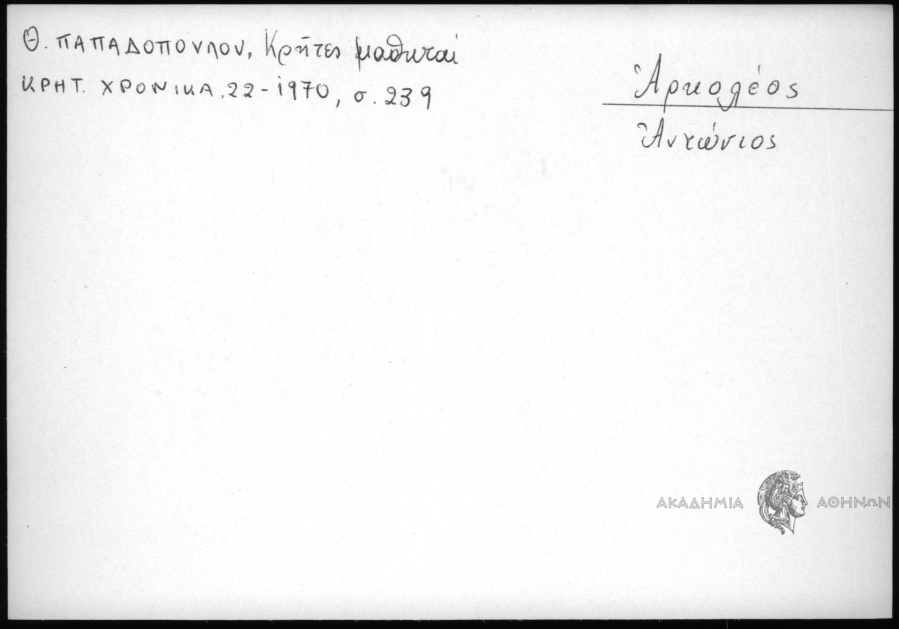 Θ. ΠΑΠΑΔΟΠΟΥΛΟΥ, Κρῆτες μαθηταί
ΚΡΗΤ. ΧΡΟΝΙΚΑ, 22-1970, σ. 239
Ἀρκολέος
Ἀντώνιος
ΑΚΑΔΗΜΙΑ ΑΘΗΝΩΝ